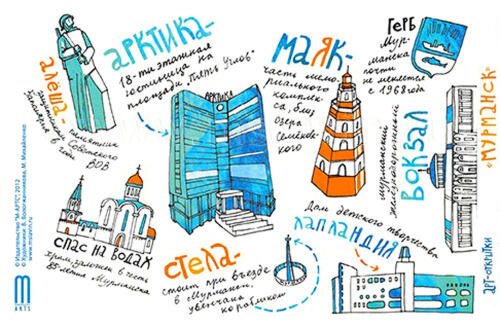 алеша-
памятник
защитникам Советского
Заполярья в годы
ВОВ
арктика-
18-ти этажная
гостиница на
площади "Пять Углов"
АРКТИКА
маяк-
часть мемо-
риального
комплек-
са, близ
озера
Семёнов-
кого
Герб
Мур-
манска
почти
не менялся
с 1968 года
вокзал
мурманский
железнодорожный
"МУРМАНСК"
СПАС НА ВОДАХ
храм, заложен в честь
85-летия Мурманска
стела-
стоит при въезде
в Мурманск,
увенчана
корабликом
Дом детского творчества
лапландия
арт-открытки
© Издательство "M-АРТС", 2012
© Художники: В. Вологжанникова, М. Михайленко
M
ARTS